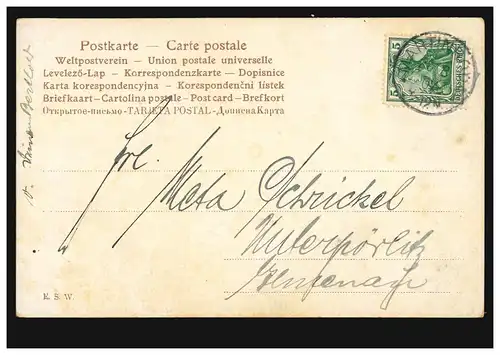 Postkarte — Carte postale
Weltpostverein — Union postale universelle
Levelező-Lap - Korrespondenzkarte - Dopisnice
Karta korespondencyjna - Korespondenční lístek
Briefkaart - Cartolina postale - Postcard - Brefkort
Открытое-письмо - TARJETA POSTAL - Дописна Карта
5 5
DEUTSCHES REICH
Frl.
Meta Schückel
Unterpörlitz
E. S. W.